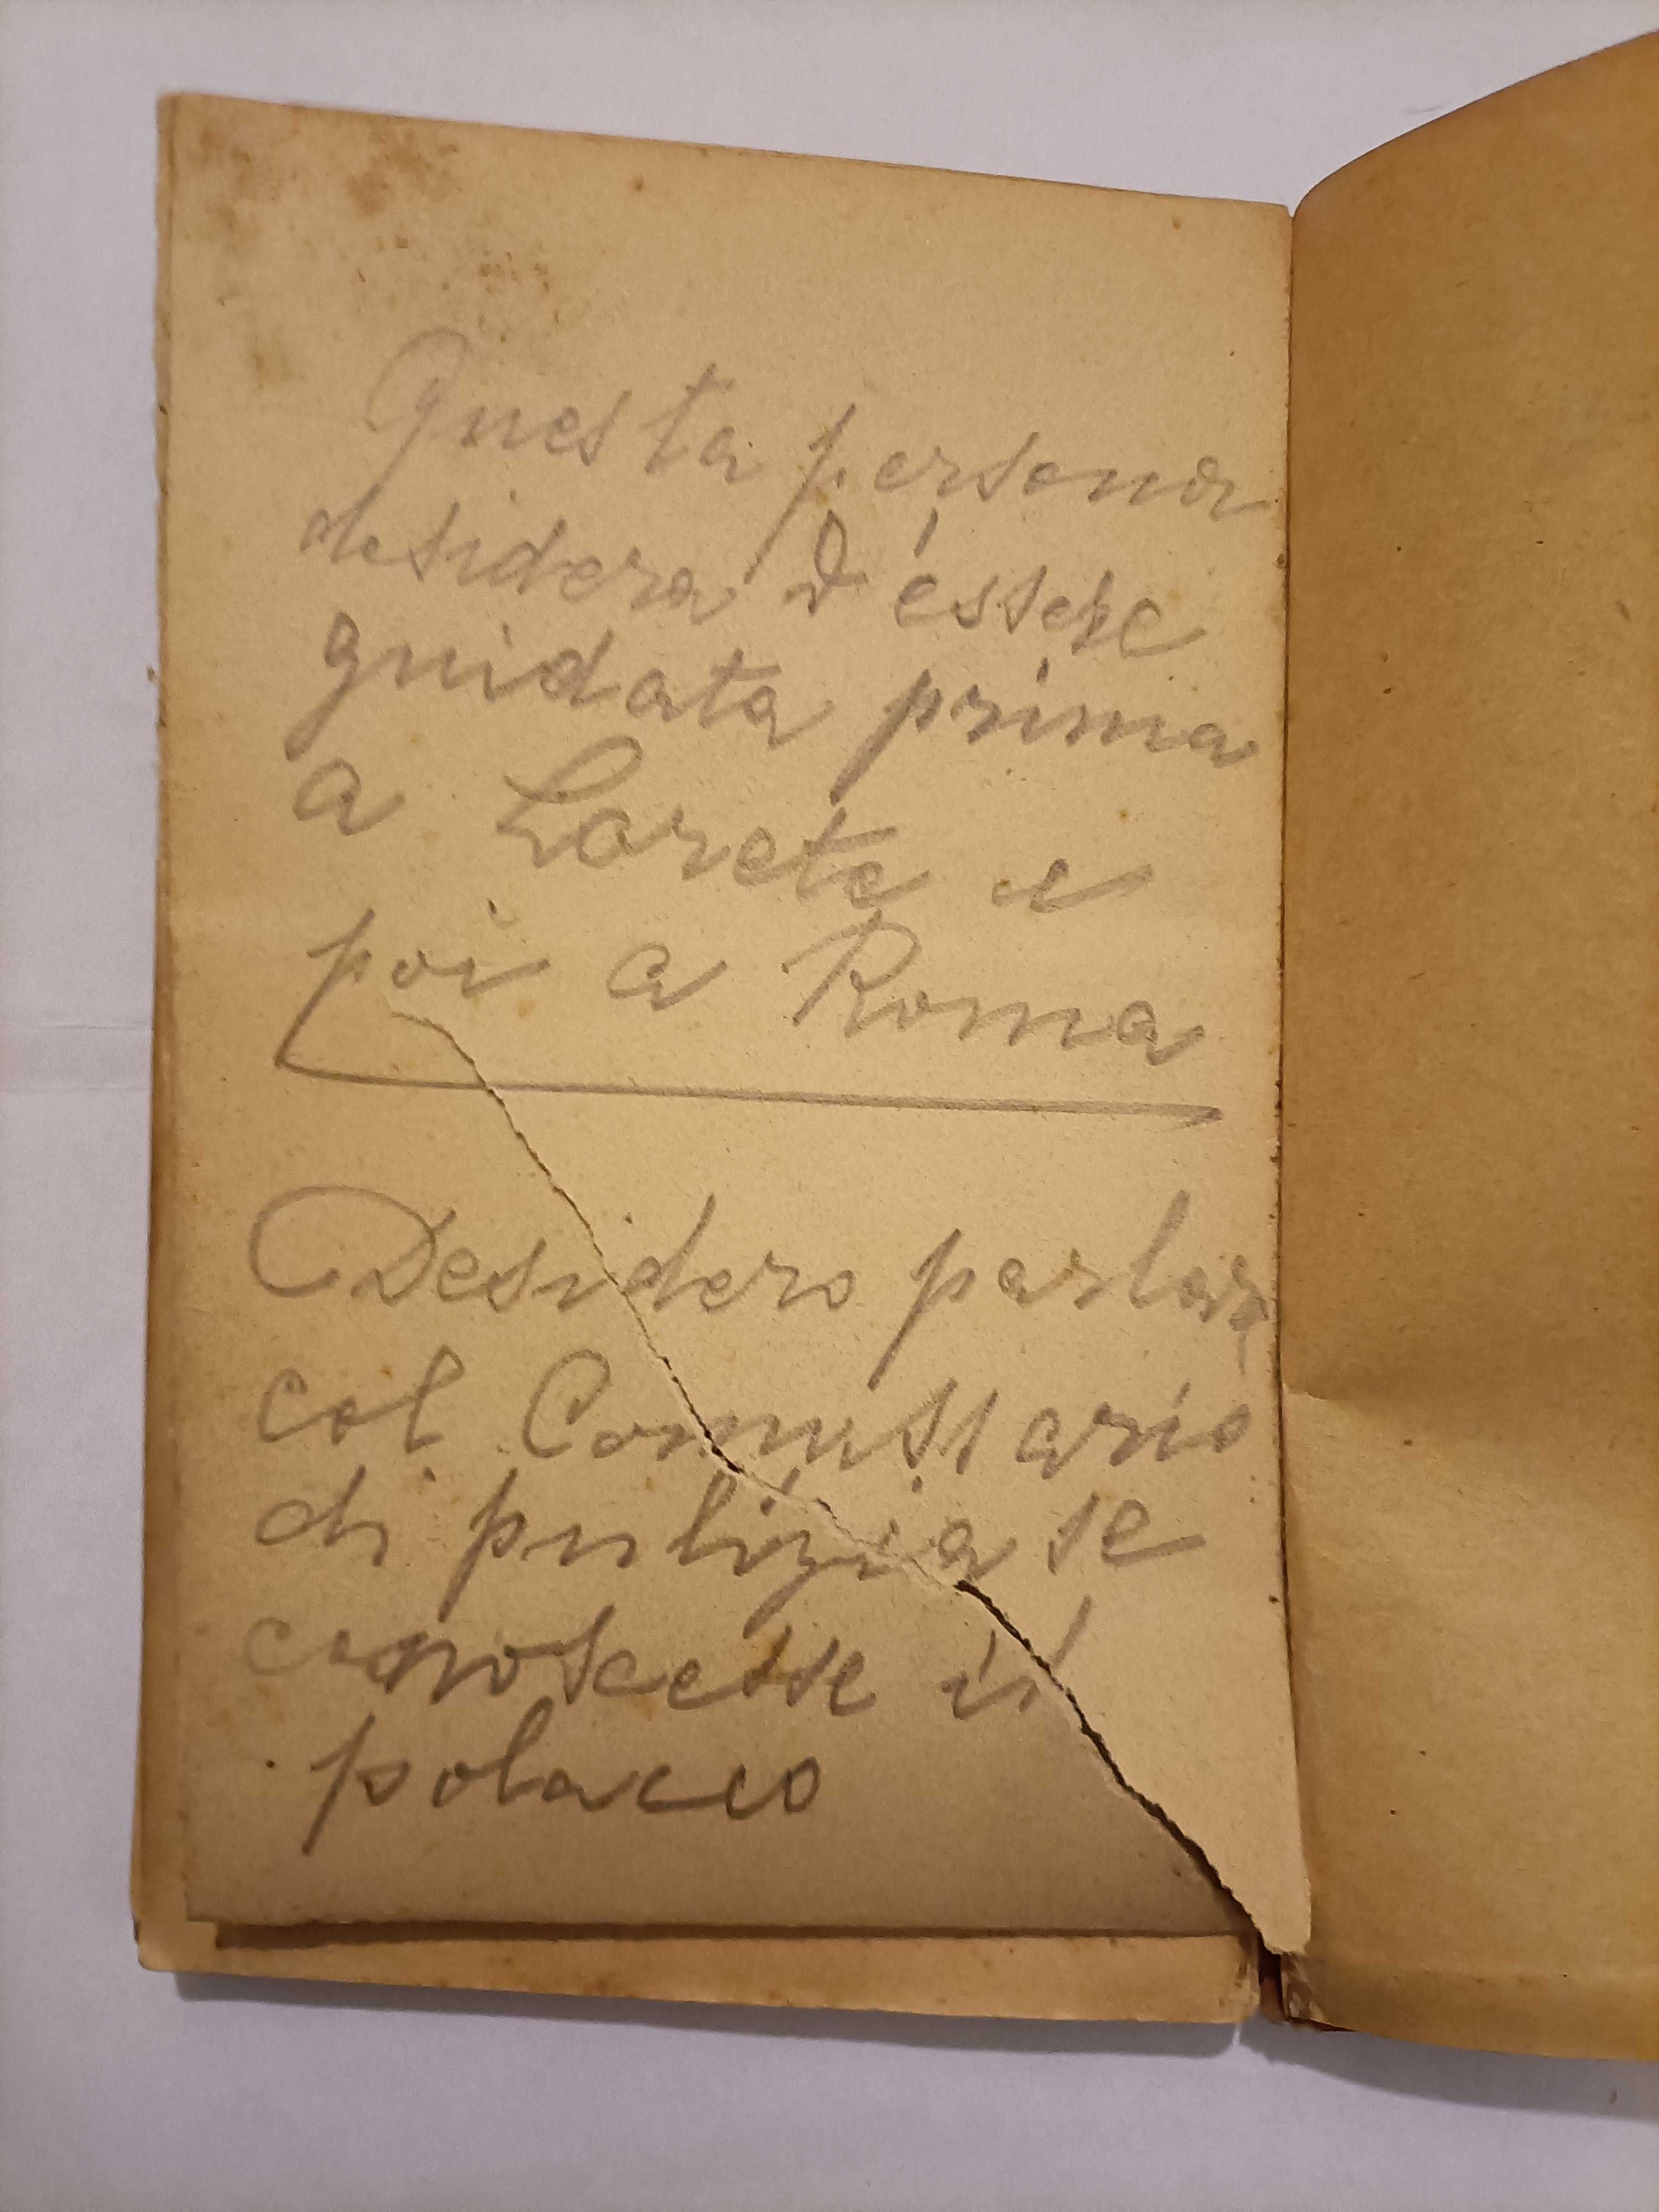 Questa persona
desidera d'essere
guidata prima
a Loreto e
poi a Roma
Desidero parlare
col Comissario
di pulizia se
conoscesse il
polacco